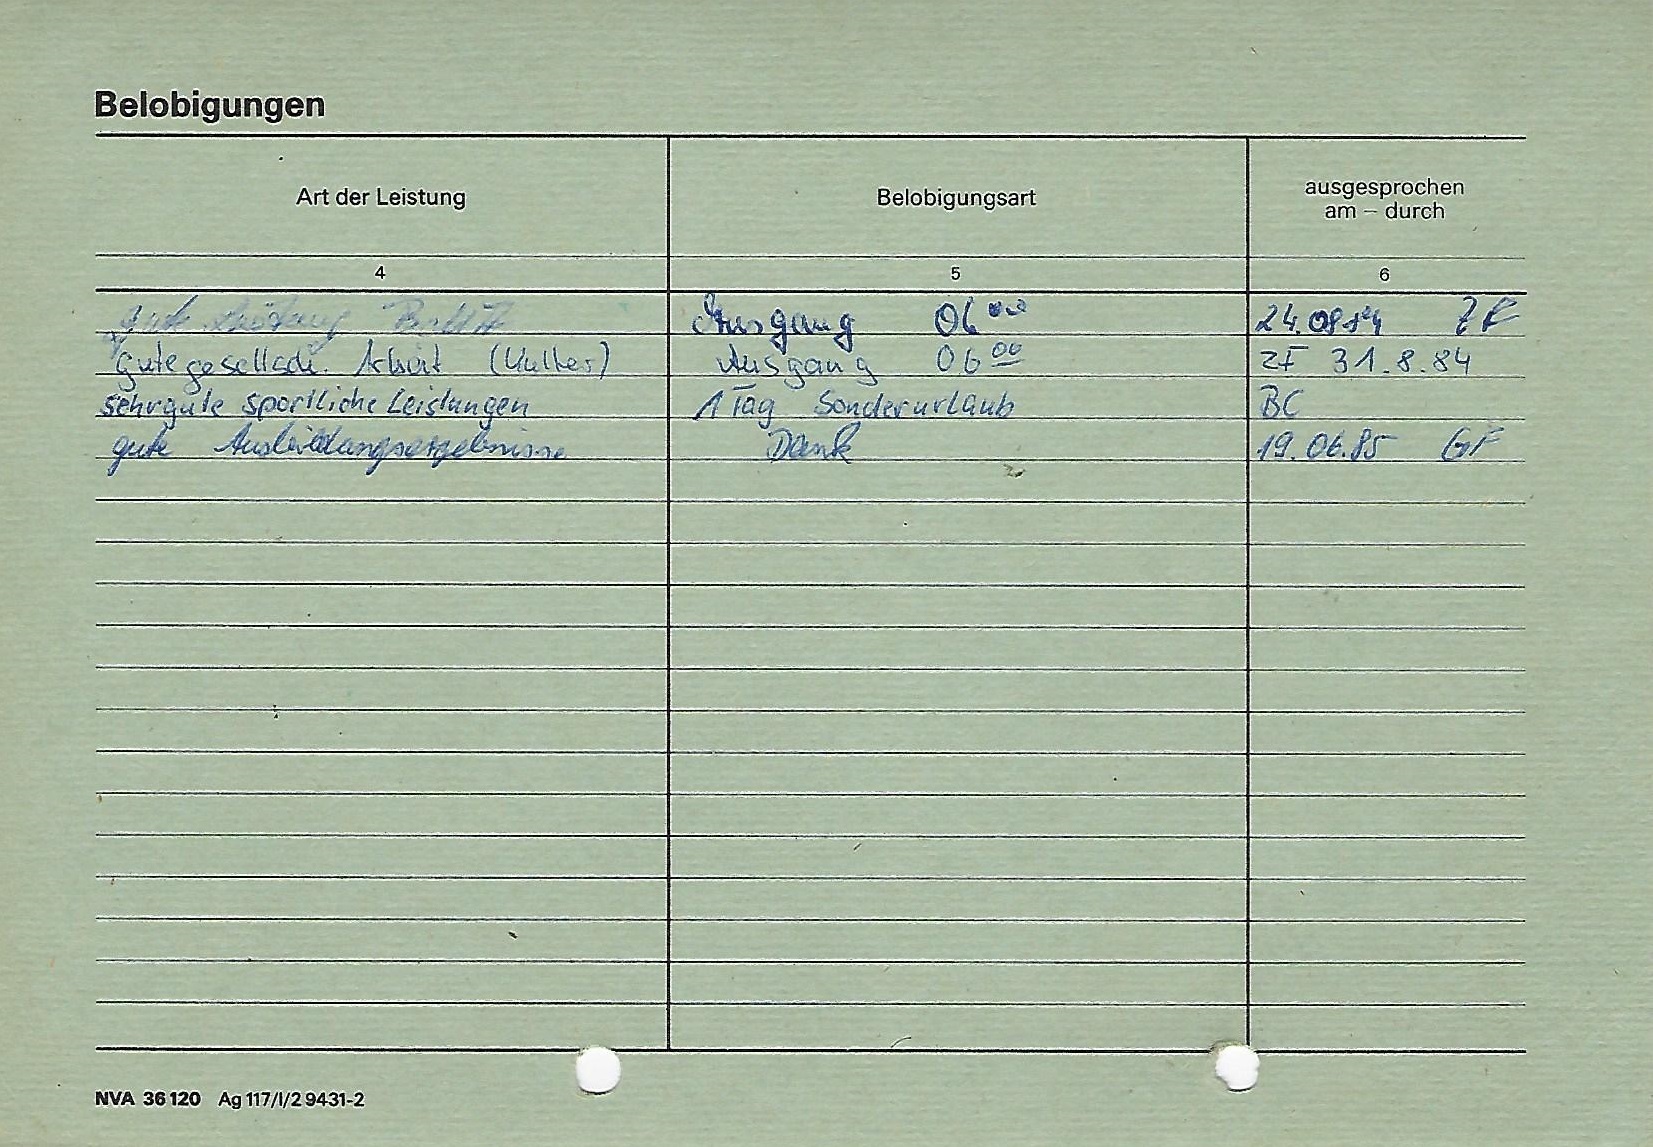 Belobigungen
Art der Leistung
Belobigungsart
ausgesprochen
am – durch
4 5 6
gute Ausgang 06 00 24.08.84 ZF
gute gesellsch. Arbeit Ausgang 06 00 ZF 31.8.84
sehr gute sportliche Leistungen 1 Tag Sonderurlaub BC
gute Ausbildungsergebnisse Dank 19.06.85 GF
NVA 36 120 Ag 117/I/2 9431-2